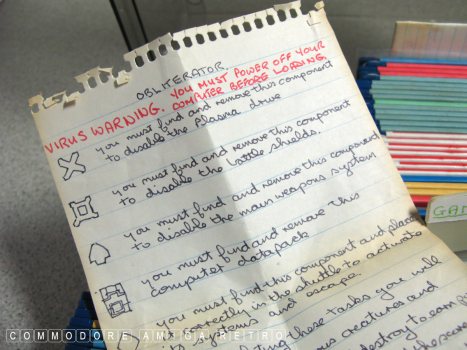 OBLITERATOR.
VIRUS WARNING. YOU MUST POWER OFF YOUR
COMPUTER BEFORE LOADING.
you must find and remove this component
to disable the plasma drive
you must find and remove this component
to disable the battle shields.
you must find and remove this component
to disable the main weapons system
you must find and remove this
computer datapack
you must find this component and place
correctly in the shuttle to activate
systems and escape.
these tasks you will
creatures and
destroy to earn
GA
COMMODORE AMIGA RETRO